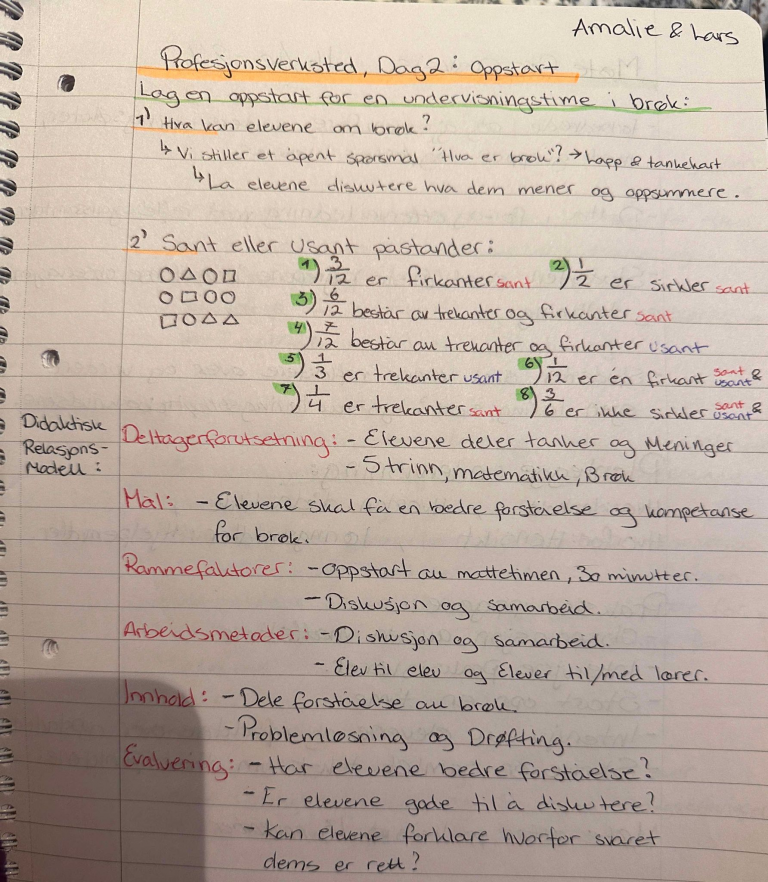 Amalie & Lars
Profesjonsverksted, Dag 2: Oppstart
Lag en oppstart for en undervisningstime i brøk:
1) Hva kan elevene om brøk?
↳ Vi stiller et åpent spørsmål "Hva er brøk"? → lapp & tankekart
↳ La elevene diskutere hva dem mener og oppsummere.
2) Sant eller Usant påstander:
1) 3/12 er firkanter sant 2) 1/2 er sirkler sant
3) 6/12 består av trekanter og firkanter sant
4) 7/12 består av trekanter og firkanter usant
5) 1/3 er trekanter usant 6) 1/12 er én firkant sant & usant
7) 1/4 er trekanter sant 8) 3/6 er ikke sirkler sant & usant
Didaktisk
Relasjons-
Modell:
Deltagerforutsetning: - Elevene deler tanker og Meninger
- 5 trinn, matematikk, Brøk
Mål: - Elevene skal få en bedre forståelse og kompetanse
for brøk.
Rammefaktorer: - Oppstart av mattetimen, 30 minutter.
- Diskusjon og samarbeid.
Arbeidsmetoder: - Diskusjon og samarbeid.
- Elev til elev og Elever til/med lærer.
Innhold: - Dele forståelse av brøk.
- Problemløsning og Drøfting.
Evaluering: - Har elevene bedre forståelse?
- Er elevene gode til å diskutere?
- Kan elevene forklare hvorfor svaret
dems er rett?